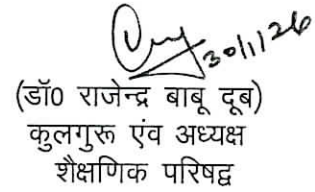 30/1/26
(डॉ0 राजेन्द्र बाबू दूब)
कुलगुरू एंव अध्यक्ष
शैक्षणिक परिषद्व